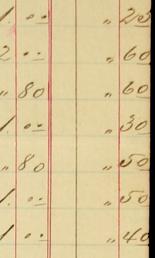 1. " " „ 25
2 " " „ 60
„ 80 „ 60
1. " " „ 30
„ 80 „ 50
1. " " „ 50
1 " " „ 40